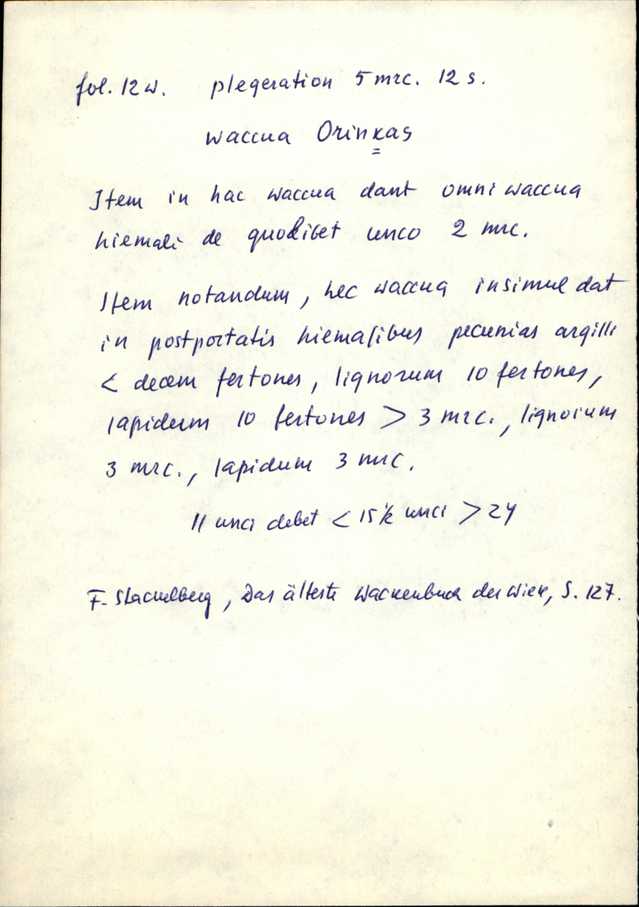 fol. 12w. plegeration 5 mrc. 12 s.
waccua Orinkas
Item in hac waccua dant omni waccua
hiemali de quolibet unco 2 mrc.
Item notandum, hec waccua insimul dat
in postportatis hiemalibus pecunias argilli
< decem fertones, lignorum 10 fertones,
lapidum 10 fertones > 3 mrc., lignorum
3 mrc., lapidum 3 mrc.
11 unci debet < 15 ½ unci > 24
F. Stackelberg, Das älteste Wackenbuch der Wiek, S. 127.